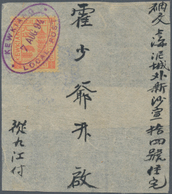 納交上海泥城外新沙壹拾四號住宅
霍少爺升啟
從九江付
KEWKIANG
7 AUG 94
LOCAL POST